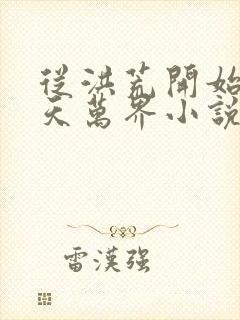 從洪荒開始
天萬界小說
雷漢强